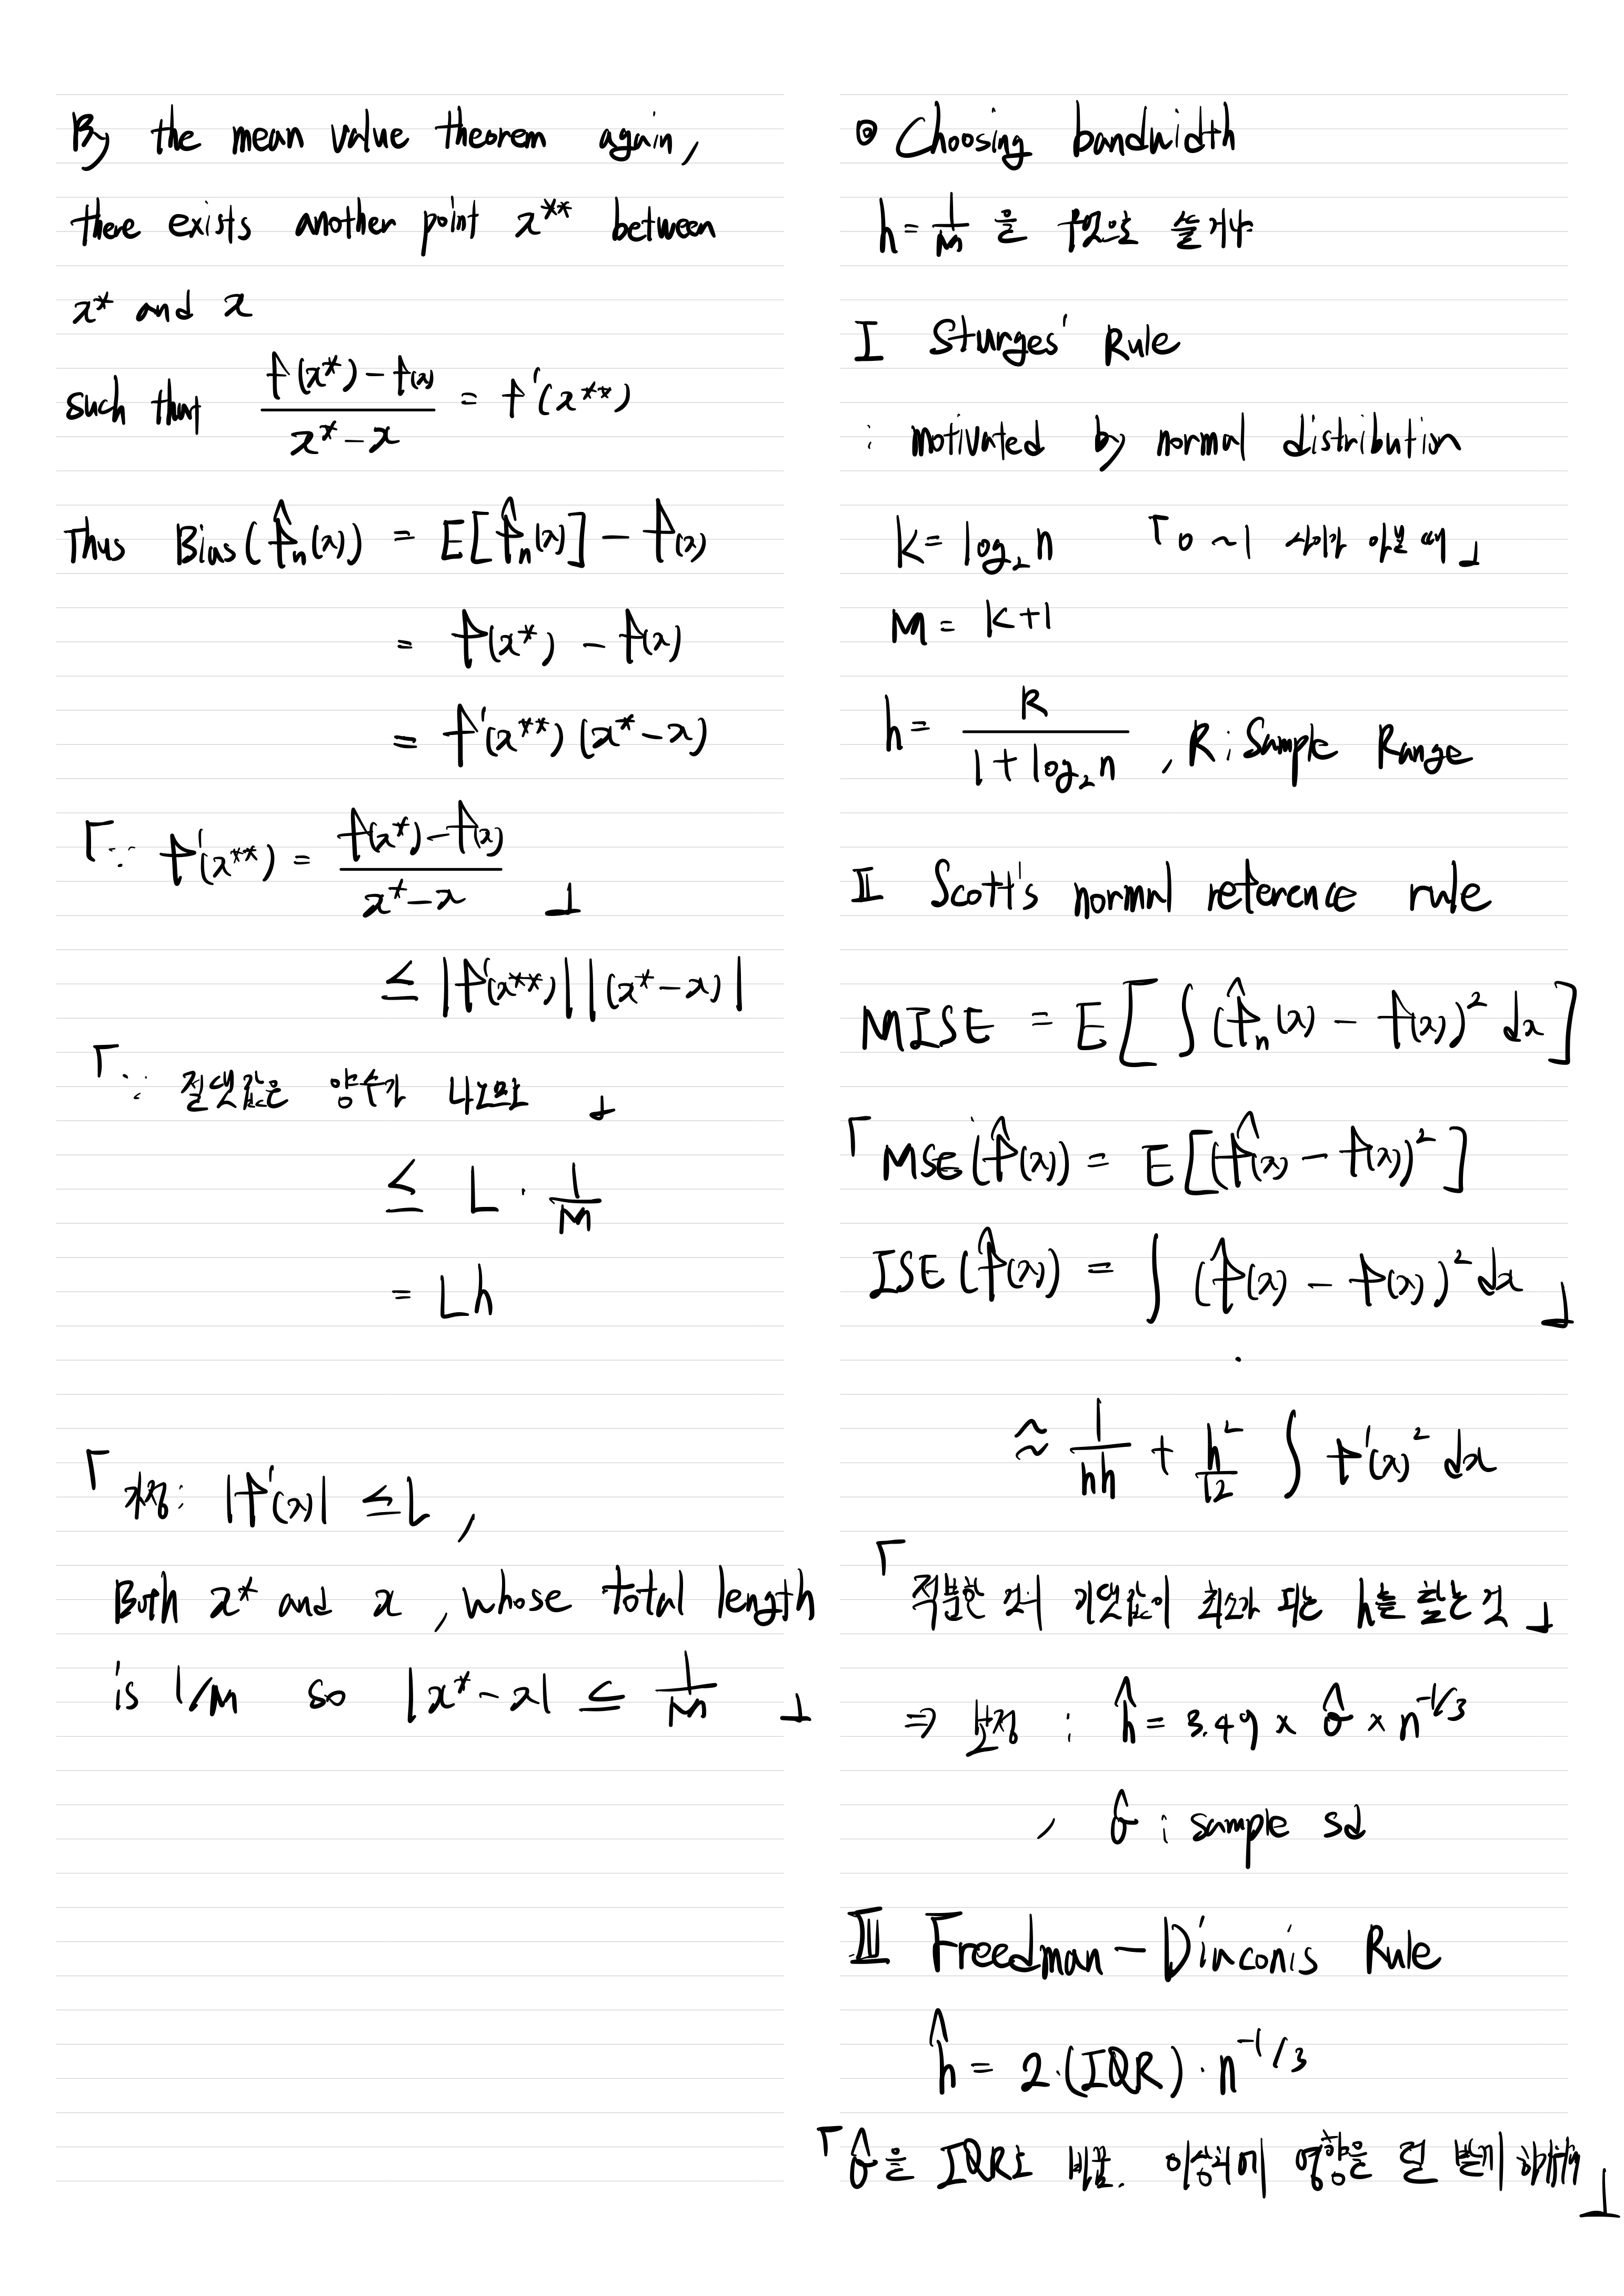 By the mean value theorem again,
there exists another point x** between
x* and x
such that (f(x*) - f(x)) / (x* - x) = f'(x**)
Thus Bias(f̂n(x)) = E[f̂n(x)] - f(x)
= f(x*) - f(x)
= f'(x**) (x* - x)
「∵ f'(x**) = (f(x*) - f(x)) / (x* - x) 」
≤ |f'(x**)| |(x* - x)|
「∵ 절댓값은 양수가 나오므로 」
≤ L · 1/M
= Lh
「 가정: |f'(x)| ≤ L ,
Both x* and x , whose total length
is 1/M so |x* - x| ≤ 1/M 」
⊙ Choosing bandwidth
h = 1/M 을 무엇으로 쓸거냐
I Sturges' Rule
: motivated by normal distribution
K = log₂ n 「0 ~ 1 사이가 아닐 때」
M = K + 1
h = R / (1 + log₂ n) , R : Sample Range
II Scott's normal reference rule
MISE = E[ ∫ (f̂n(x) - f(x))² dx ]
「MSE(f̂(x)) = E[(f̂(x) - f(x))²]
ISE(f̂(x)) = ∫ (f̂(x) - f(x))² dx 」
≈ 1/nh + h²/12 ∫ f'(x)² dx
「적분한 것의 기댓값이 최소가 되는 h를 찾는 것」
⇒ : ĥ = 3.49 × σ̂ × n^(-1/3)
, σ̂ : sample sd
III Freedman - Diaconis Rule
ĥ = 2·(IQR)·n^(-1/3)
「σ̂을 IQR로 바꿈. 이상치에 영향을 덜 받게 하기위해」